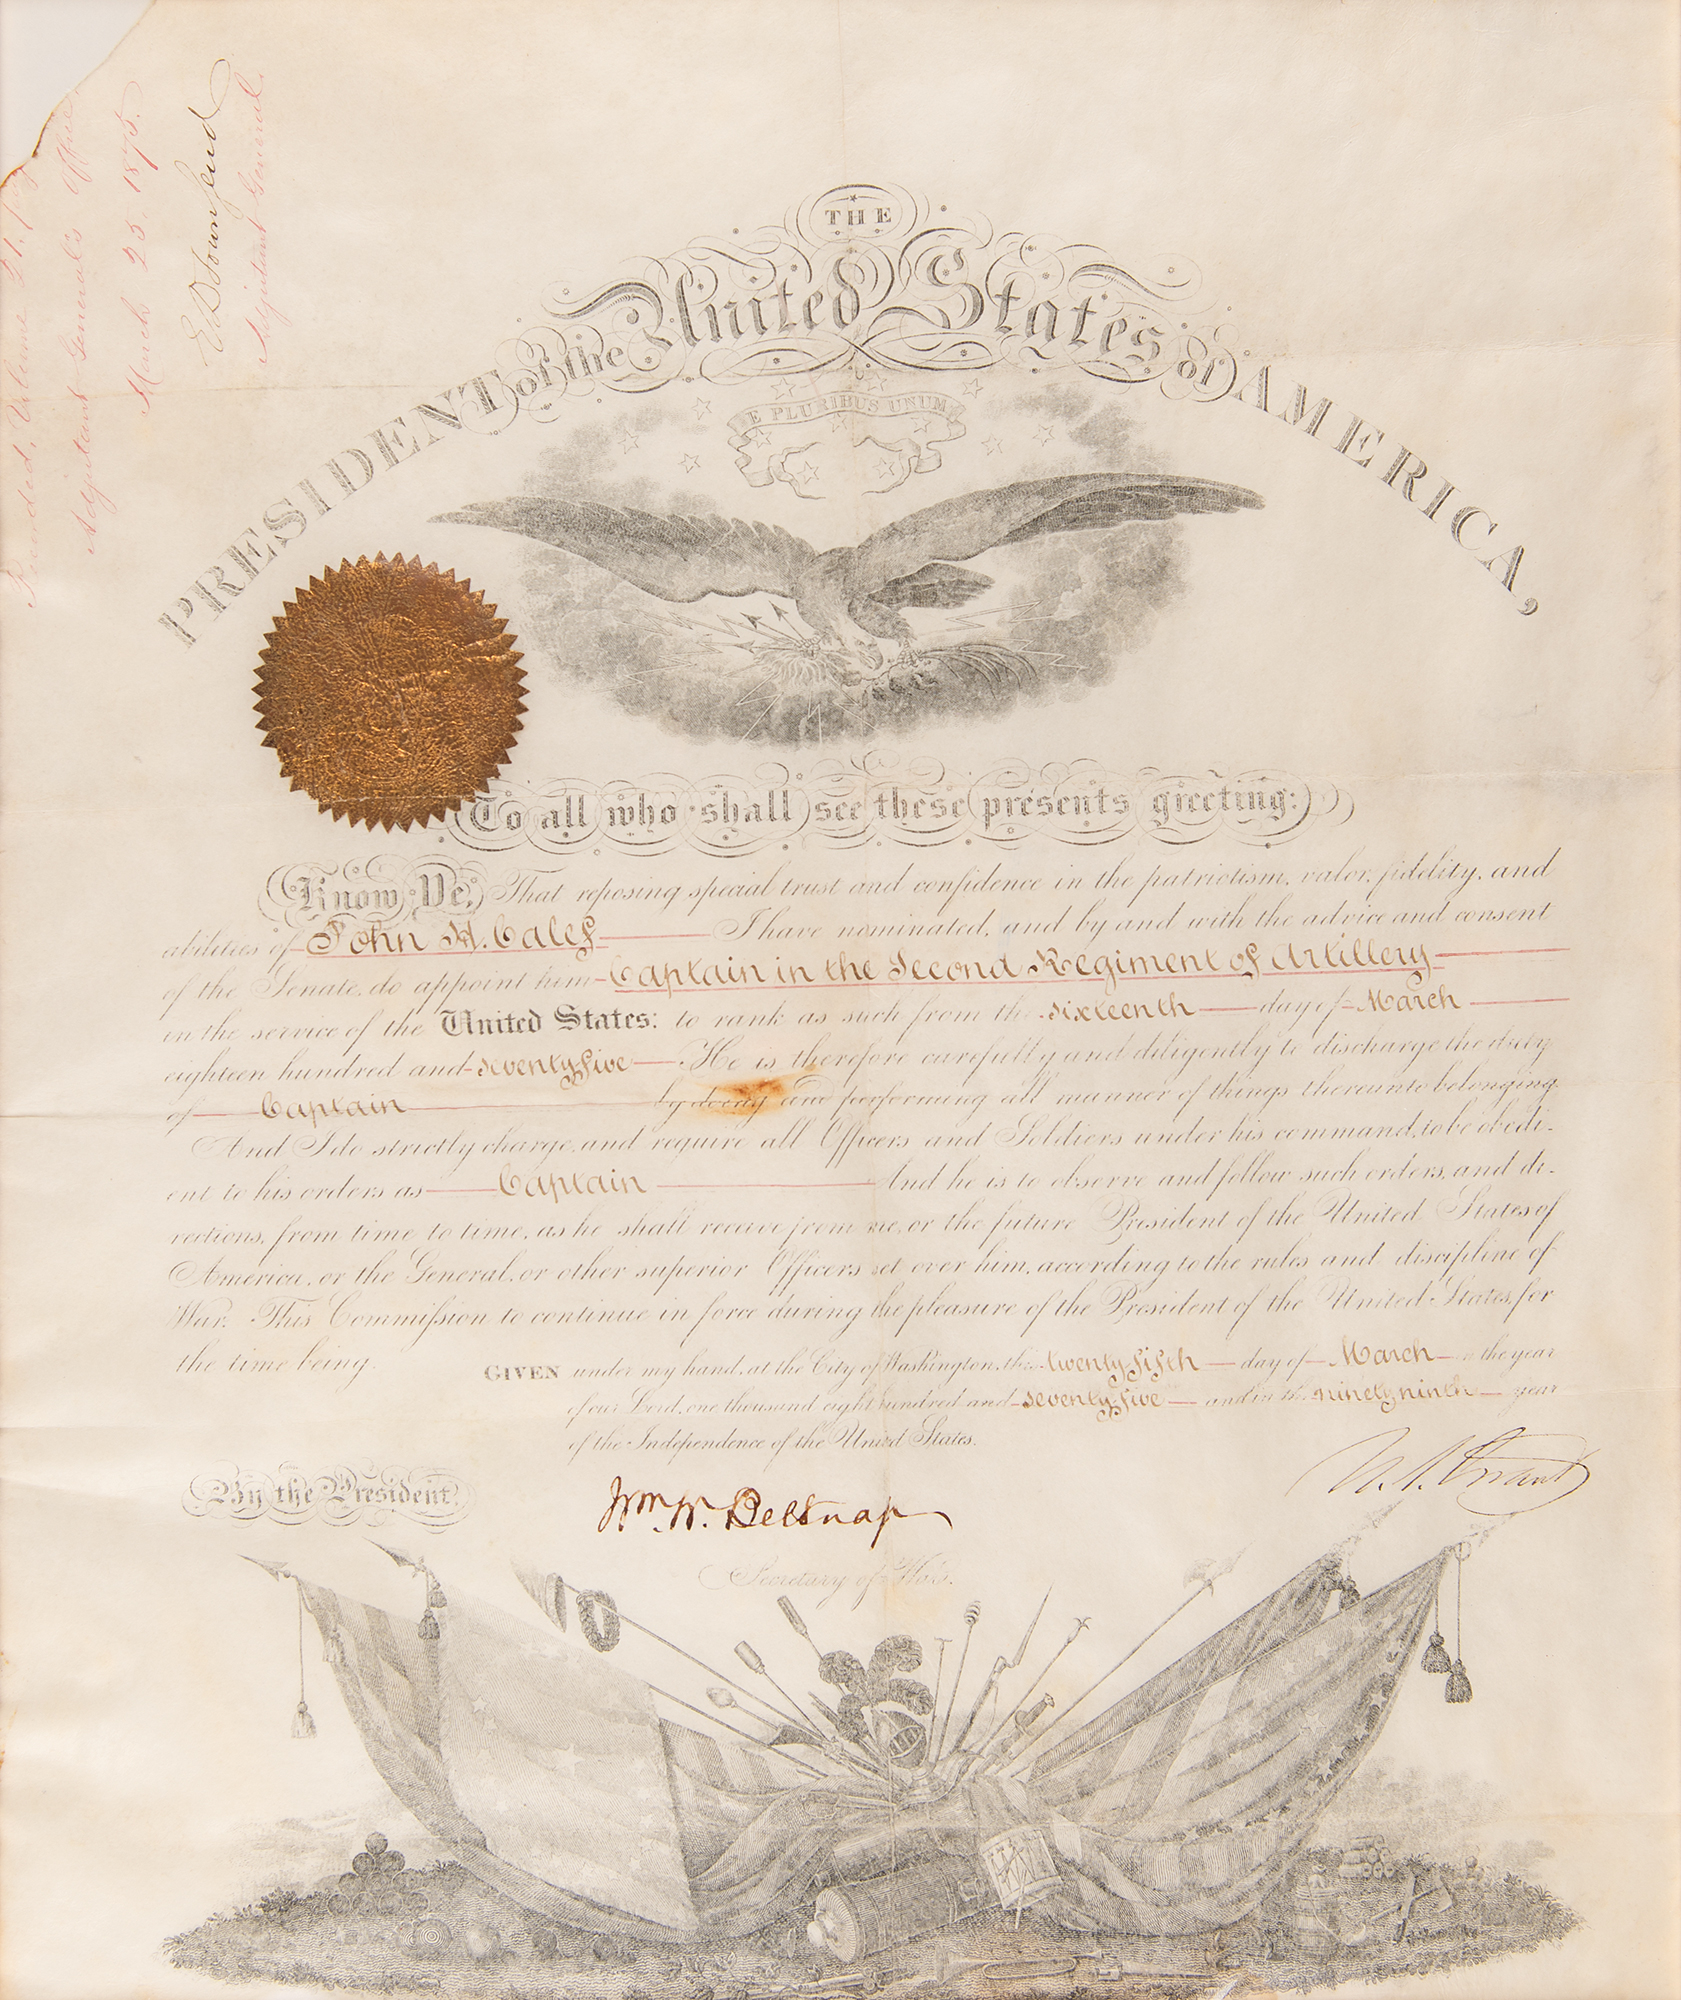 Recorded, Volume 21,
Adjutant General's Office,
March 25. 1875.
E D Townsend
Adjutant General.
THE
PRESIDENT of the United States of AMERICA,
E PLURIBUS UNUM
To all who shall see these presents greeting:
Know Ye, That reposing special trust and confidence in the patriotism, valor, fidelity, and
abilities of John H. Calef I have nominated, and by and with the advice and consent
of the Senate, do appoint him Captain in the Second Regiment of Artillery
in the service of the United States: to rank as such from the sixteenth day of March
eighteen hundred and seventy five. He is therefore carefully and diligently to discharge the duty
of Captain by doing and performing all manner of things thereunto belonging.
And I do strictly charge, and require all Officers and Soldiers under his command, to be obedi-
ent to his orders as Captain And he is to observe and follow such orders, and di-
rections, from time to time, as he shall receive from me, or the future President of the United States of
America, or the General, or other superior Officers set over him, according to the rules and discipline of
War. This Commission to continue in force during the pleasure of the President of the United States, for
the time being.
GIVEN under my hand, at the City of Washington, this twenty fifth day of March in the year
of our Lord, one thousand eight hundred and seventy five and in the ninety ninth year
of the Independence of the United States.
U. S. Grant
By the President.
Wm. W. Belknap
Secretary of War.